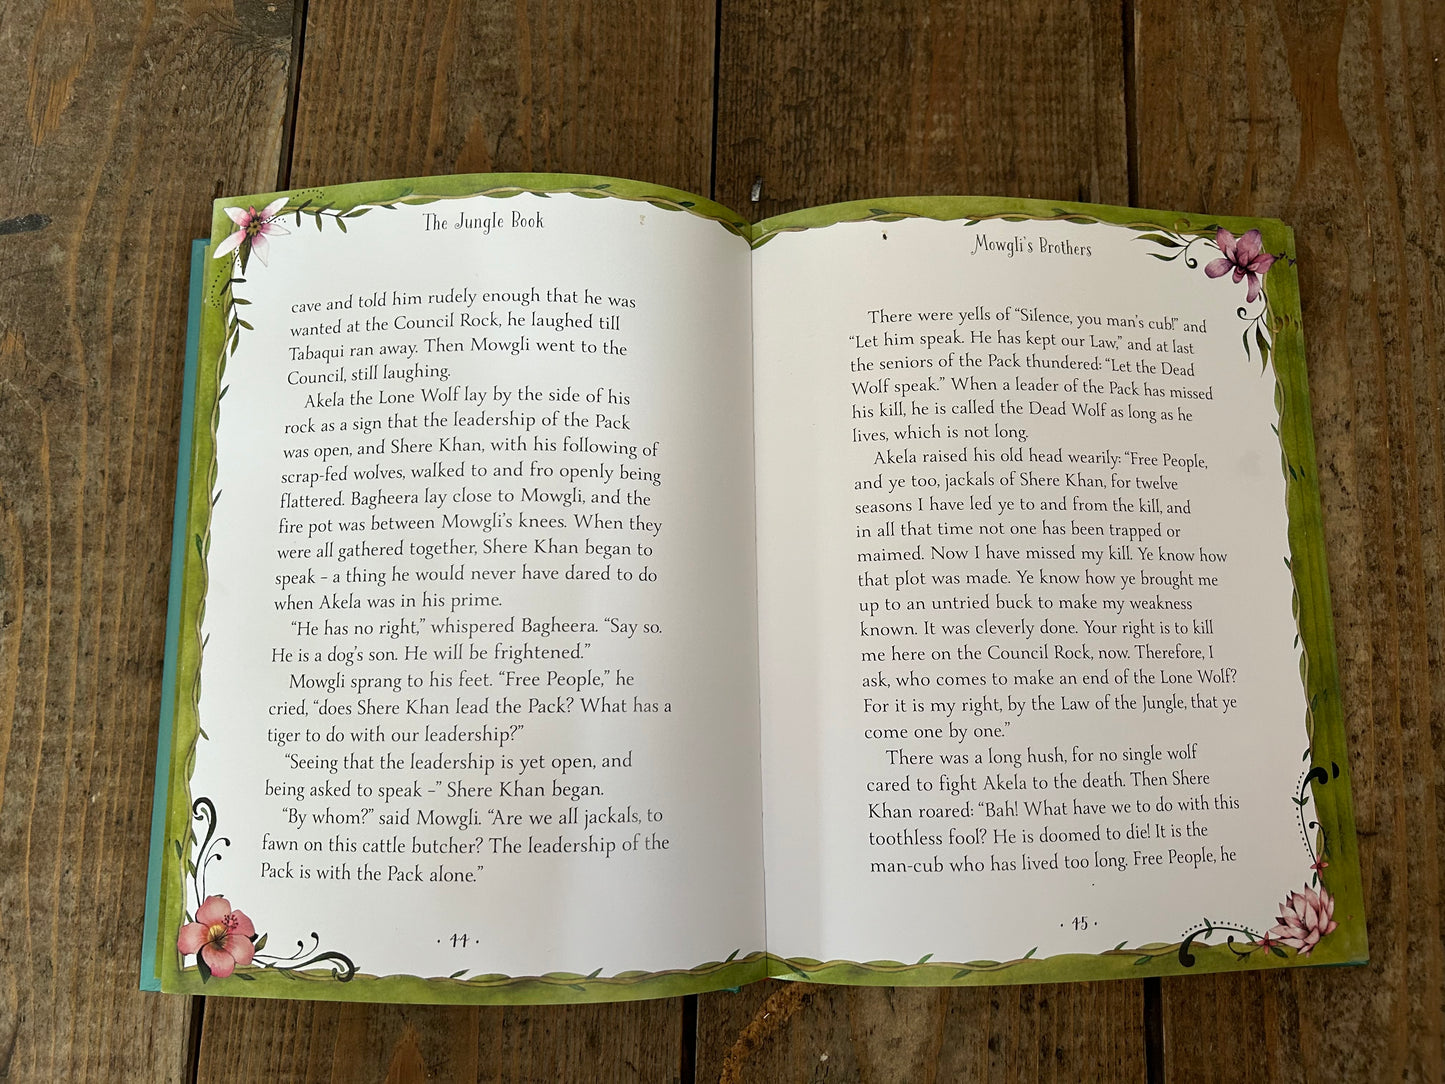 The Jungle Book
cave and told him rudely enough that he was
wanted at the Council Rock, he laughed till
Tabaqui ran away. Then Mowgli went to the
Council, still laughing.
Akela the Lone Wolf lay by the side of his
rock as a sign that the leadership of the Pack
was open, and Shere Khan, with his following of
scrap-fed wolves, walked to and fro openly being
flattered. Bagheera lay close to Mowgli, and the
fire pot was between Mowgli's knees. When they
were all gathered together, Shere Khan began to
speak – a thing he would never have dared to do
when Akela was in his prime.
“He has no right,” whispered Bagheera. “Say so.
He is a dog's son. He will be frightened.”
Mowgli sprang to his feet. “Free People,” he
cried, “does Shere Khan lead the Pack? What has a
tiger to do with our leadership?”
“Seeing that the leadership is yet open, and
being asked to speak –” Shere Khan began.
“By whom?” said Mowgli. “Are we all jackals, to
fawn on this cattle butcher? The leadership of the
Pack is with the Pack alone.”
· 44 ·
Mowgli's Brothers
There were yells of “Silence, you man's cub!” and
“Let him speak. He has kept our Law,” and at last
the seniors of the Pack thundered: “Let the Dead
Wolf speak.” When a leader of the Pack has missed
his kill, he is called the Dead Wolf as long as he
lives, which is not long.
Akela raised his old head wearily: “Free People,
and ye too, jackals of Shere Khan, for twelve
seasons I have led ye to and from the kill, and
in all that time not one has been trapped or
maimed. Now I have missed my kill. Ye know how
that plot was made. Ye know how ye brought me
up to an untried buck to make my weakness
known. It was cleverly done. Your right is to kill
me here on the Council Rock, now. Therefore, I
ask, who comes to make an end of the Lone Wolf?
For it is my right, by the Law of the Jungle, that ye
come one by one.”
There was a long hush, for no single wolf
cared to fight Akela to the death. Then Shere
Khan roared: “Bah! What have we to do with this
toothless fool? He is doomed to die! It is the
man-cub who has lived too long. Free People, he
· 45 ·